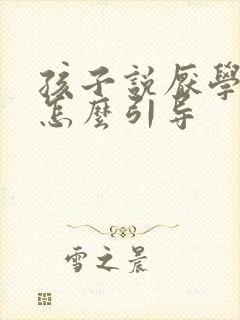 孩子説厭學
怎麽引导
雪之晨